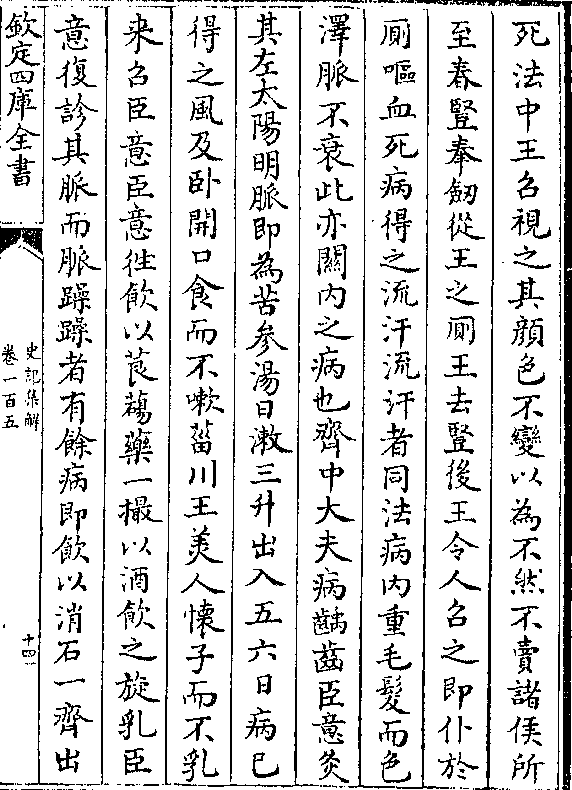 死法中王召視之其顔色不變以為不然不賣諸侯所
至春豎奉劒從王之厠王去豎後王令人召之即仆於
厠嘔血死病得之流汗流汗者同法病内重毛髮而色
澤脈不衰此亦關内之病也齊中大夫病齲齒臣意灸
其左太陽明脈即為苦參湯日漱三升出入五六日病已
得之風及卧開口食而不嗽菑川王美人懷子而不乳
来召臣意臣意徃飲以莨䓪藥一撮以酒飲之旋乳臣
意復診其脈而脈躁躁者有餘病即飲以消石一齊出
欽定四庫全書
史記集解
卷一百五
十四